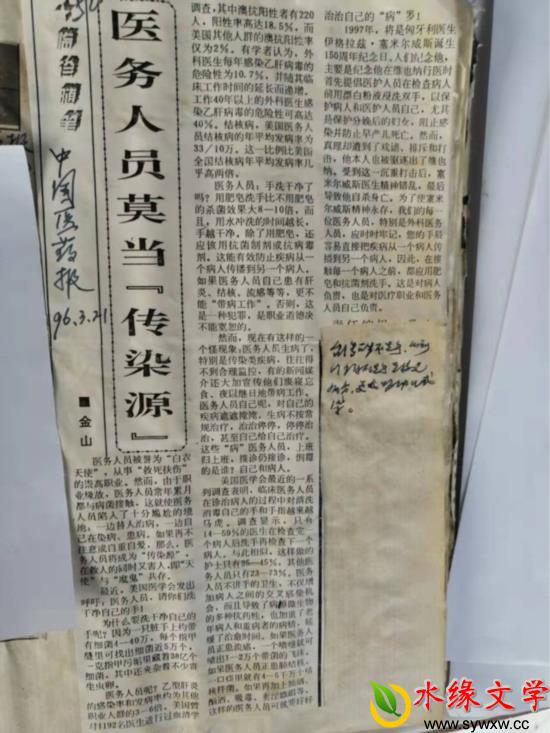 中国医药报
96.3.21
医务人员莫当『传染源』
金山
医务人员被誉为“白衣
天使”，从事“救死扶伤”
的崇高职业。然而，由于职
业缘故，医务人员常年累月
都与病菌接触，这就使医务
人员陷入了十分尴尬的境
地：一边替人治病，一边自
己在染病、患病。如果再不
注意或自重自爱，那么，医
务人员将成为“传染源”，
在救人的同时又害人，即“天
使”与“魔鬼”共存。
最近，美国医学会发出
呼吁：医务人员，请你们洗
干净自己的手！
为什么要洗干净自己的
手呢？因为一只脏手上约带
有细菌4—40万，每个指甲
缝里可找出细菌近5万个，
一克指甲污垢里藏着38亿个
细菌，其中还夹杂着不少寄
生虫卵。
医务人员呢？乙型肝炎
的感染率和发病率约为其他
职业人群的3—6倍。美国曾
对1192名医生进行过血清学
调查，其中澳抗阳性者有220
人，阳性率高达18.5%，而
美国其他人群的澳抗阳性率
仅为2%。有学者认为，外
科医生每年感染乙肝病毒的
危险性为10.7%，并随其临
床工作时间的延长而递增，
工作40年以上的外科医生感
染乙肝病毒的危险性可高达
40%。结核病，美国医务人
员结核病的年平均发病率为
33／10万。这一比例比美国
全国结核病年平均发病率几
乎高两倍。
医务人员：手洗干净了
吗？用肥皂洗手比不用肥皂
的杀菌效果大8—10倍，而
且，用水冲洗的时间越长，
手越干净，除了用肥皂，还
应该用抗菌制剂或抗病毒
剂。这能有效防止疾病从一
个病人传播到另一个病人。
如果医务人员自己患有肝
炎、结核、流感等等，更不
能“带病工作”。否则，这是
一种犯罪，是职业道德决不
能宽恕的。
然而，现在有这样的一
个怪现象：医务人员生病了，
特别是传染类疾病，往往得
不到合理监控，有的新闻媒
介还大加宣传他们废寝忘
食、夜以继日地带病工作。
医务人员自己呢，对自己的
疾病遮遮掩掩，生病不按常
规治疗，治治停停，停停治
治，甚至自己给自己治疗。
这些“病”医务人员，上班
归上班，接诊仍接诊，倒霉
的是谁？自己和病人。
美国医学会最近的一系
列调查表明，临床医务人员
在诊治病人的过程中对清洗
消毒自己的手和手指越来越
马虎。调查显示，只有
14—59%的医生在检查完一
个病人后洗手再检查下一个
病人。与此相似，这样做的
护士只有25—45%，其他医
务人员只有23—73%。医务
人员不讲手的卫生，不仅增
加病人之间的交叉感染机
会，而且导致了病原微生物
的多种抗药性，也加重了老
年病人和重病者的病情，延
缓了治愈时间。如果医务人
员正患流感，一个喷嚏就可
喷出1—2万个带菌的飞沫。
如果医务人员正患肺结核，
一口痰里就有4—5千万个结
核杆菌。如果再加上抽烟、
酗酒、吸毒、老淫嫖娼等，
这样的医务人员可就要好好
治治自己的“病”罗！
1997年，将是匈牙利医生
伊格拉兹·塞米尔威斯诞生
150周年纪念日，人们纪念他，
主要是纪念他在维也纳行医时
首先提倡医护人员在检查病人
前用漂白粉液浸洗双手，以保
护病人和医护人员自己，尤其
是保护分娩后的妇女，阻止感
染并防止早产儿死亡。然而，
真理却遭到了戏谑、排斥和打
击，他本人也被驱逐出了维也
纳。受到这一沉重打击后，塞
米尔威斯医生精神错乱，最后
导致他自杀身亡。为了使塞米
尔威斯精神永存，我们的每一
位医务人员，特别是外科医务
人员，应时时牢记，您的手最
容易直接把疾病从一个病人传
播到另一个病人，因此，在接
触每一个病人之前，都应用肥
皂和抗菌剂洗手。这是对病人
负责，也是对医疗职业和医务
人员自己负责。
水缘文学
www.sywxw.cc